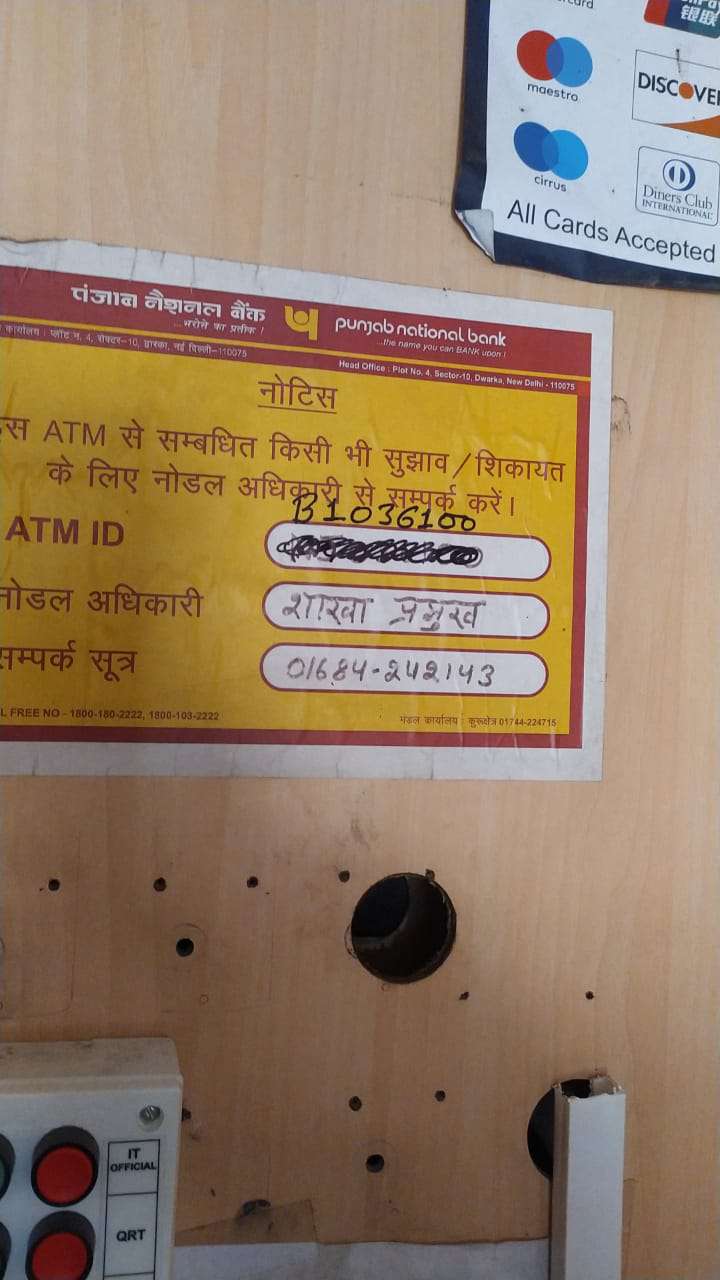 银联
maestro
DISCOVE
cirrus
Diners Club
INTERNATIONAL
All Cards Accepted
पंजाब नैशनल बैंक
...भरोसे का प्रतीक !
punjab national bank
...the name you can BANK upon !
कार्यालय : प्लॉट न. 4, सेक्टर-10, द्वारका, नई दिल्ली-110075
Head Office : Plot No. 4, Sector-10, Dwarka, New Delhi - 110075
नोटिस
स ATM से सम्बधित किसी भी सुझाव / शिकायत
के लिए नोडल अधिकारी से सम्पर्क करें।
B1036100
ATM ID
नोडल अधिकारी शाखा प्रमुख
सम्पर्क सूत्र 01684-242143
L FREE NO - 1800-180-2222, 1800-103-2222
मंडल कार्यालय : कुरूक्षेत्र 01744-224715
IT
OFFICIAL
QRT